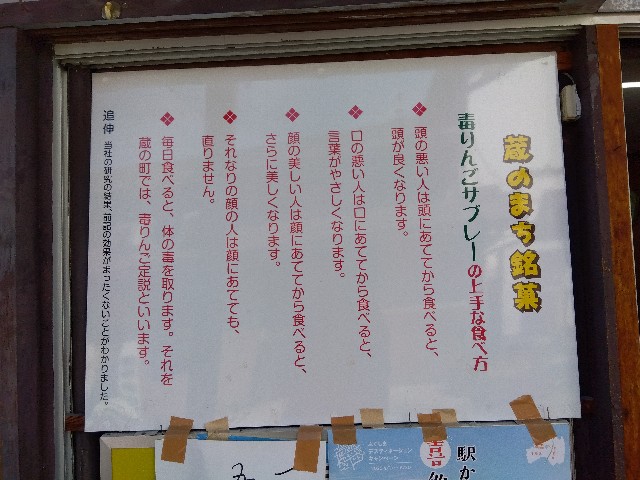 蔵のまち銘菓
毒りんごサブレーの上手な食べ方
❖ 頭の悪い人は頭にあててから食べると、
頭が良くなります。
❖ 口の悪い人は口にあててから食べると、
言葉がやさしくなります。
❖ 顔の美しい人は顔にあててから食べると、
さらに美しくなります。
❖ それなりの顔の人は顔にあてても、
直りません。
❖ 毎日食べると、体の毒を取ります。それを
蔵の町では、毒りんご定説といいます。
追伸 当社の研究の結果、前記の効果がまったくないことがわかりました。
駅か